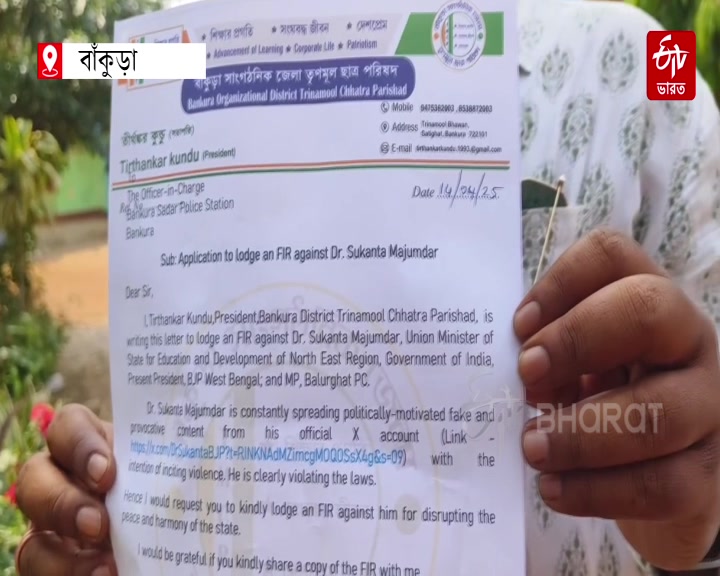 বাঁকুড়া
ETV
ভারত
★ শিক্ষার প্রগতি ★ সংঘবদ্ধ জীবন ★ দেশপ্রেম
Advancement of Learning ★ Corporate Life ★ Patriotism
বাঁকুড়া সাংগঠনিক জেলা তৃণমূল ছাত্র পরিষদ
Bankura Organizational District Trinamool Chhatra Parishad
তীর্থঙ্কর কুন্ডু (সভাপতি)
Tirthankar kundu (President)
Mobile 9475362003 , 8538872003
Address Trinamool Bhawan,
Bankura 722101
E-mail tirthankarkundu.1993@gmail.com
To
The Officer-in-Charge
Bankura Sadar Police Station
Bankura
Date 14/04/25
Sub: Application to lodge an FIR against Dr. Sukanta Majumdar
Dear Sir,
I, Tirthankar Kundu,President,Bankura District Trinamool Chhatra Parishad, is
writing this letter to lodge an FIR against Dr. Sukanta Majumdar, Union Minister of
State for Education and Development of North East Region, Government of India,
Present President, BJP West Bengal; and MP, Balurghat PC.
Dr. Sukanta Majumdar is constantly spreading politically-motivated fake and
provocative content from his official X account (Link –
https://x.com/DrSukantaBJP?t=RINKNAdMZimcgMOQOSsX4g&s=09) with the
intention of inciting violence. He is clearly violating the laws.
Hence I would request you to kindly lodge an FIR against him for disrupting the
peace and harmony of the state.
I would be grateful if you kindly share a copy of the FIR with me
BHARAT